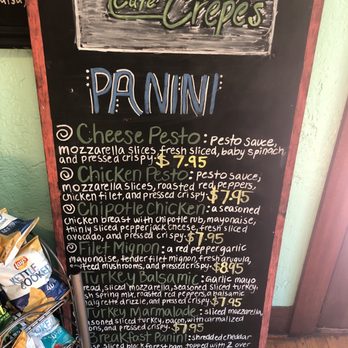 Café
Crepes
PANINI
Cheese Pesto: pesto sauce,
mozzarella slices, fresh sliced, baby spinach
and pressed crispy $7.95
Chicken Pesto: pesto sauce,
mozzarella slices, roasted red peppers,
chicken filet, and pressed crispy $7.95
Chipotle Chicken: a seasoned
chicken breast with chipotle rub, mayonaise,
thinly sliced pepperjack cheese, fresh sliced
avocado, and pressed crispy $7.95
Filet Mignon: a red pepper garlic
mayonaise, tender filet mignon, fresh arugula,
mushrooms, and pressed crispy $8.95
Turkey Balsamic: Garlic mayo
sliced mozzarella, seasoned sliced turkey,
spring mix, roasted red peppers, a balsamic
drizzle, and pressed crispy $7.95
Turkey Marmalade: sliced mozzarella,
seasoned sliced turkey, bacon, with
and pressed crispy $7.95
Breakfast Panini: shredded cheddar
sliced black forest ham topped with 2 over
Lay's
KETTLE
COOKED